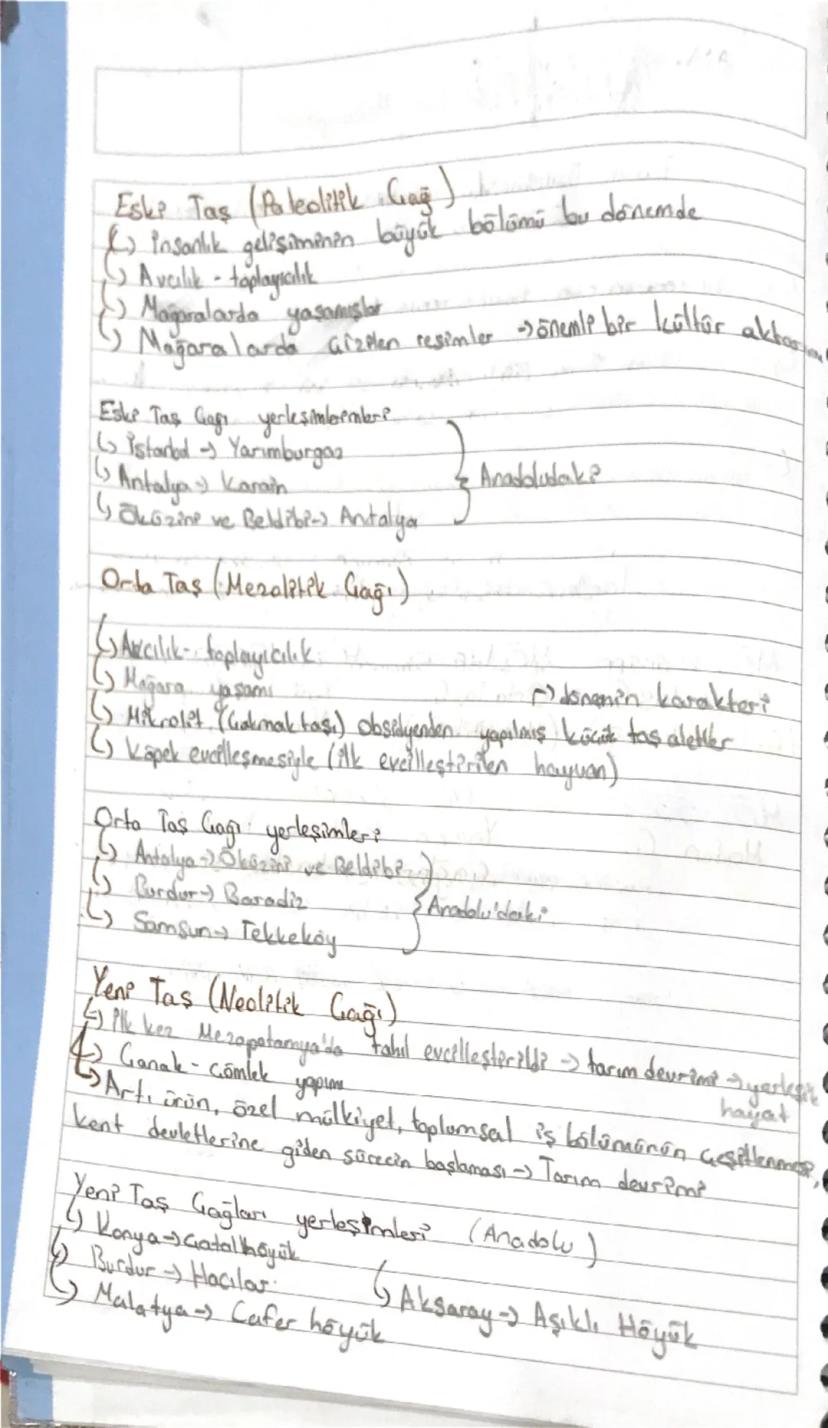 Eski Taş (Paleolitik Çağ)
↳ insanlık gelişiminin büyük bölümü bu dönemde
↳ Avcılık - toplayıcılık
↳ Mağaralarda yaşamışlar
↳ Mağaralarda çizilen resimler → önemli bir kültür
Eski Taş Çağı
↳ İstanbul → Yarımburgaz
↳ Antalya → Karain
↳ Öküzini ve Beldibi → Antalya
Anadoludaki
Orta Taş (Mezolitik Çağı)
↳ Avcılık - toplayıcılık
↳ Mağara yaşamı
↱ dönemin karakteri
↳ Mikrolit (Çakmaktaşı) obsidyenden yapılmış küçük taş aletler
↳ Köpek evcilleşmesiyle (ilk evcilleştirilen hayvan)
Orta Taş Çağı yerleşimleri
↳ Antalya → Öküzini ve Beldibi
↳ Burdur → Baradiz
↳ Samsun → Tekkeköy
Anadolu'daki
Yeni Taş (Neolitik Çağı)
↳ ilk kez Mezopotamya'da tahıl evcilleştirildi → tarım devrimi → yerleşik hayat
↳ Çanak - çömlek yapımı
↳ Artı ürün, özel mülkiyet, toplumsal iş bölümünün çeşitlenmesi,
kent devletlerine giden sürecin başlaması → Tarım devrimi
Yeni Taş Çağları yerleşimleri (Anadolu)
↳ Konya → Çatalhöyük
↳ Burdur → Hacılar
↳ Aksaray → Aşıklı Höyük
↳ Malatya → Cafer höyük